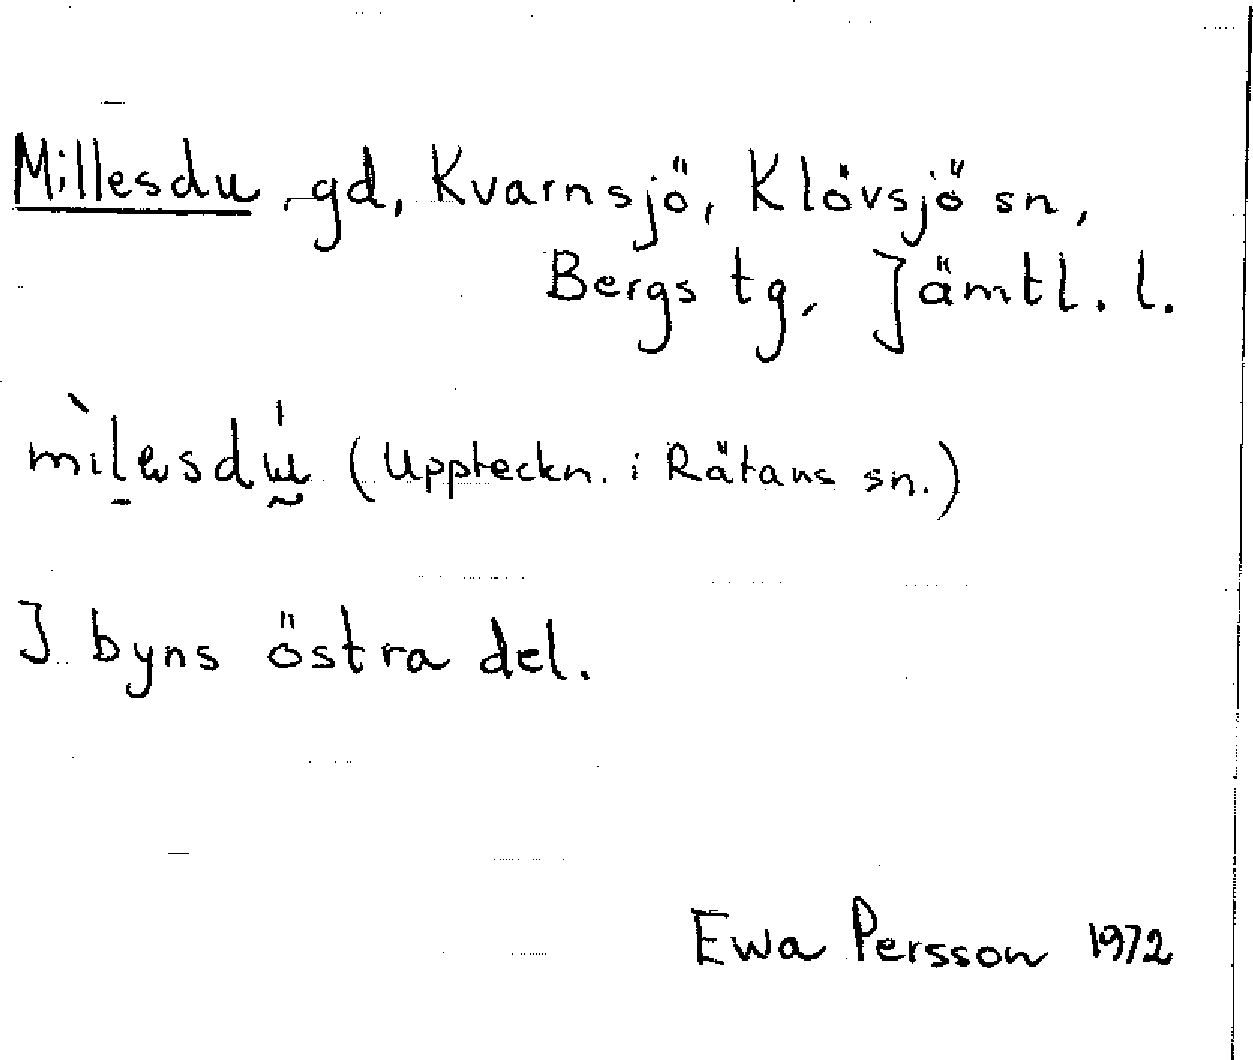 Millesdu gd, Kvarnsjö, Klövsjö sn,
Bergs tg, Jämtl. l.
(Uppteckn. i Rätans sn.)
I byns östra del.
Ewa Persson 1972